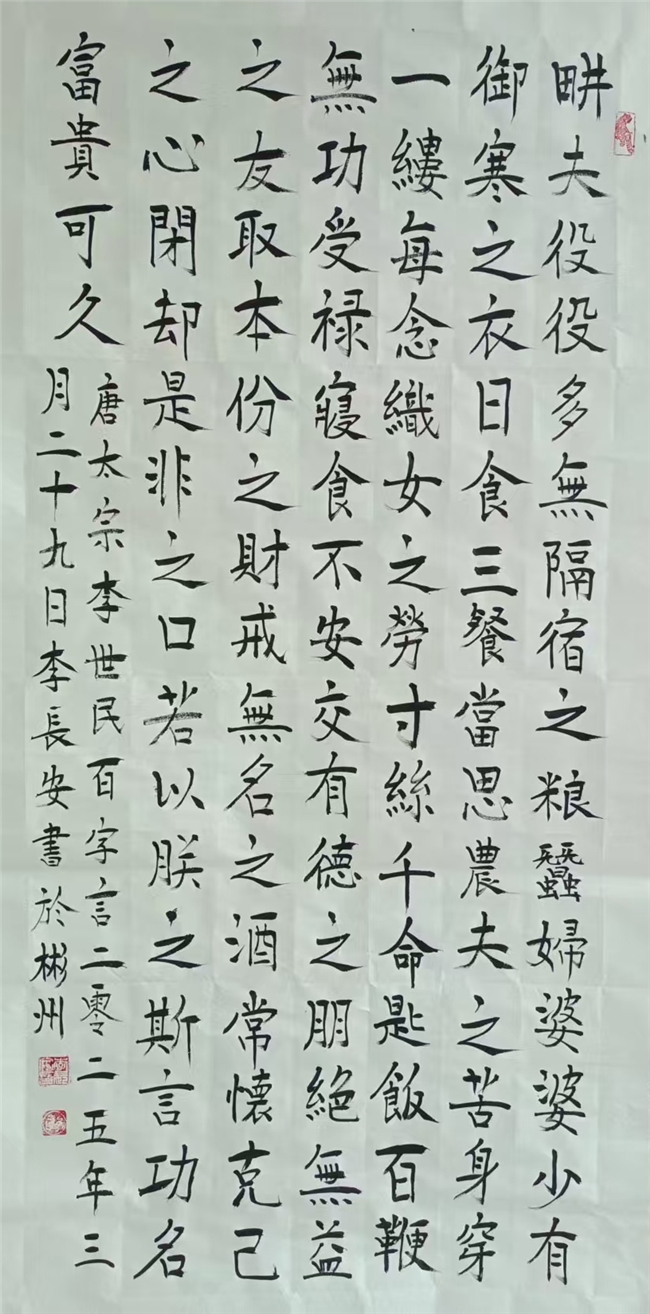 畊夫役役多無隔宿之粮蠶婦婆婆少有
御寒之衣日食三餐當思農夫之苦身穿
一縷每念織女之勞寸絲千命匙飯百鞭
無功受禄寢食不安交有德之朋絶無益
之友取本份之財戒無名之酒常懷克己
之心閉却是非之口若以朕之斯言功名
富貴可久
唐太宗李世民百字言二零二五年三
月二十九日李長安書於彬州